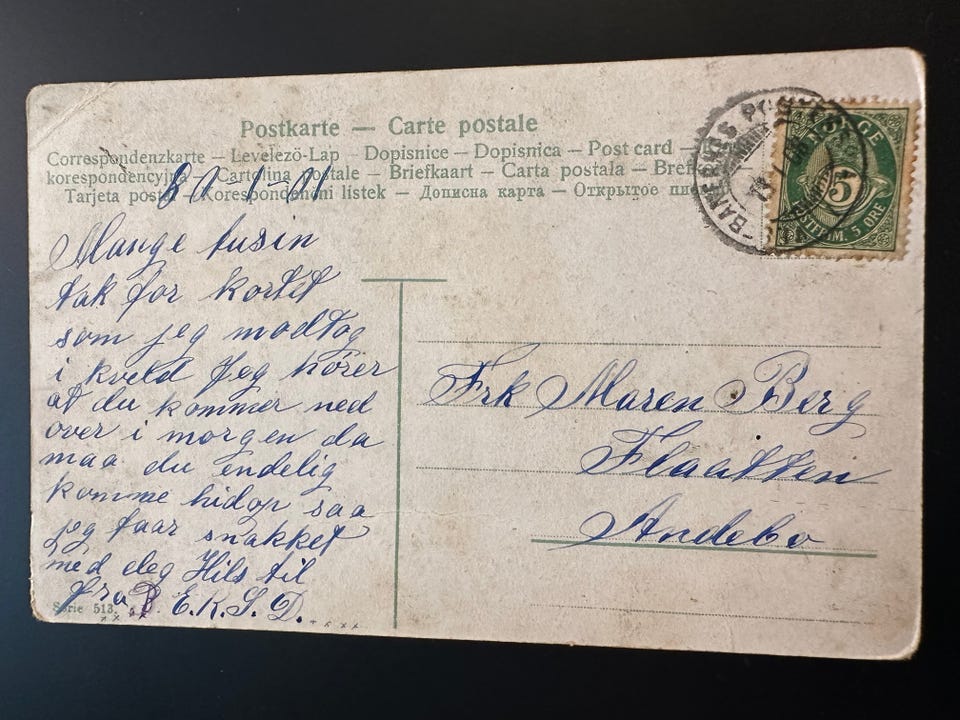 Postkarte — Carte postale
Correspondenzkarte — Levelező-Lap — Dopisnice — Dopisnica — Post card —
korespondencyjna — Cartolina postale — Briefkaart — Carta postala — Brefk
Tarjeta postal — Korespondenčni listek — Дописна карта — Открытое пис
Mange tusin
tak for kortet
som jeg modtog
i kveld Jeg hörer
at du kommer ned
over i morgen da
maa du endelig
komme hidop saa
jeg faar snakket
med deg Hils til
fra E.K.S.D.
Serie 513.
NORGE
5
POSTFRIM. 5 ØRE
Frk Maren Berg
Flaatten
Andebo